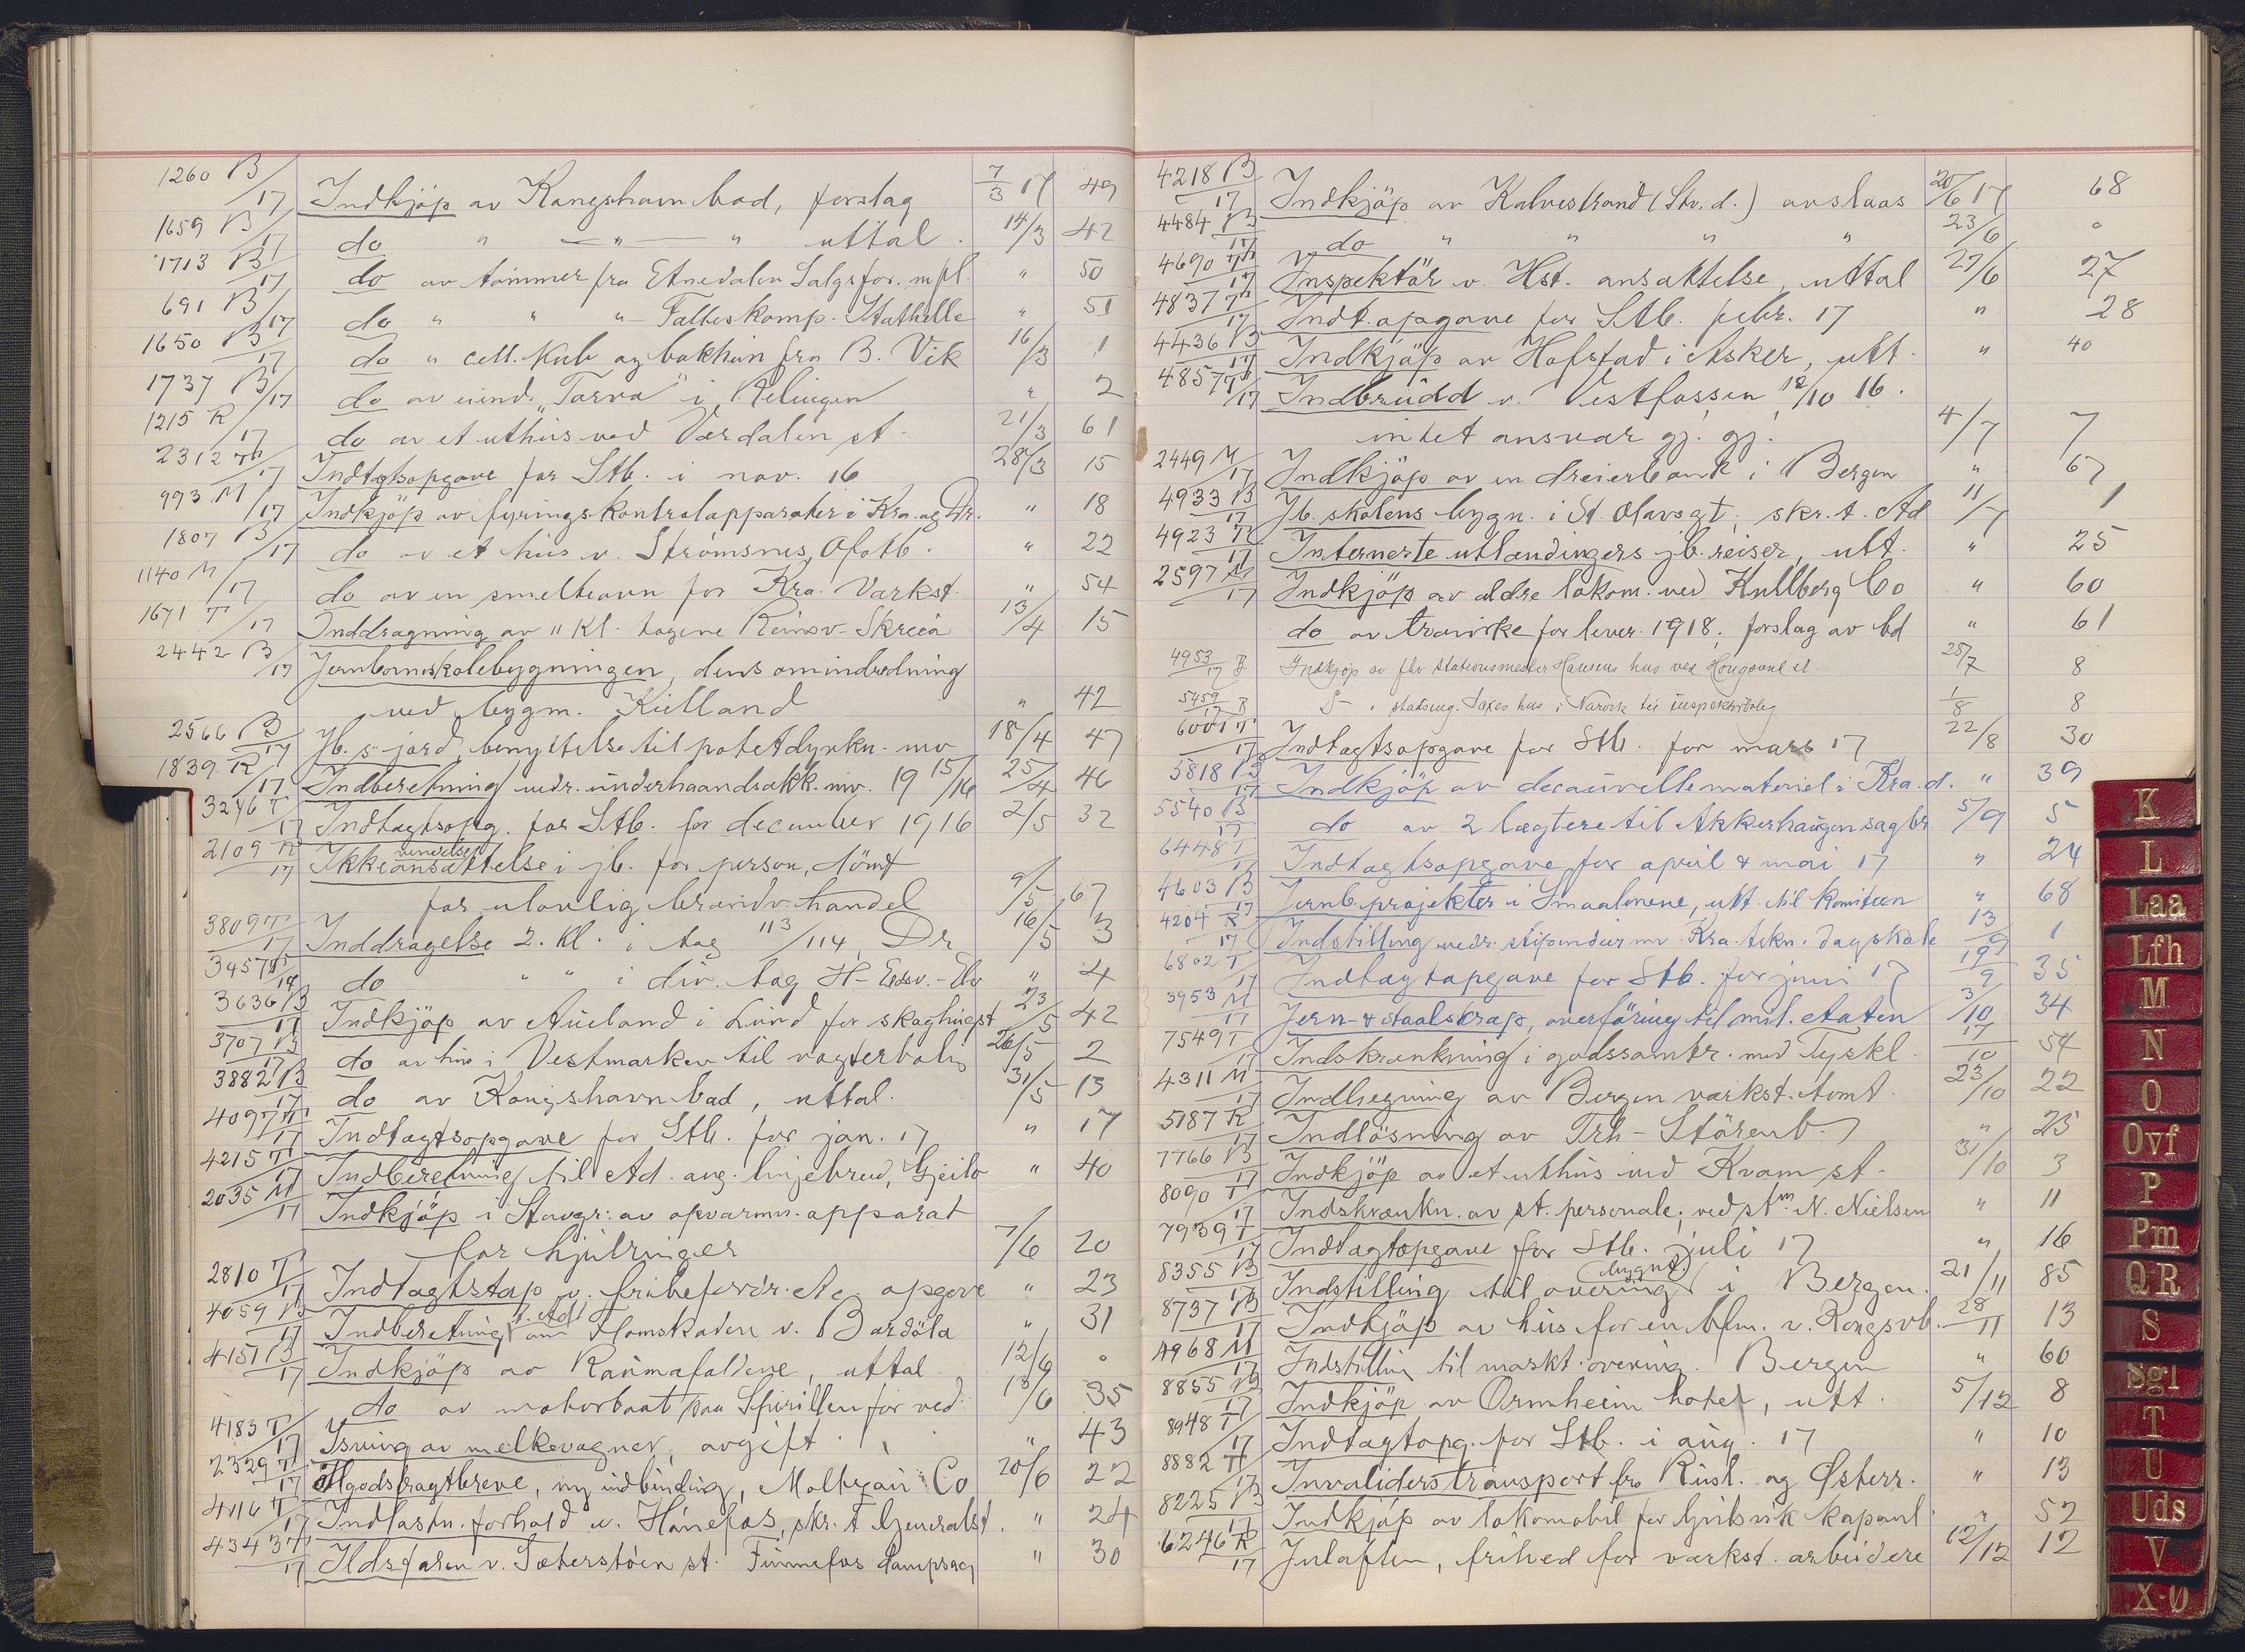 1260 B/17 Indkjöp av Kongshavn bad, forslag 7/3 17 49
1659 B/17 do " — " — " uttal. 14/3 42
1713 B/17 do av tömmer fra Etnedalen Salgsfor. m/pl. " 50
691 B/17 do " " " Falbeskomp. Stathelle " 51
1650 B/17 do " cell. kub og bakhun fra B. Vik 16/3 1
1737 B/17 do av eiend. "Torva" i Relingen " 2
1215 R/17 do av et uthus ved Værdalen st. 21/3 61
2312 T/17 Indtægtsopgave for Stb. i nov. 16 28/3 15
993 M/17 Indkjöp av fyringskontrolapparater i Kra. og Dr. " 18
1807 B/17 do av et hus v. Strömsnes, Ofotb. " 22
1140 M/17 do av en smelteovn for Kra. Værkst. " 54
1671 T/17 Inddragning av " Kl. togene Reinsv-Skreia 13/4 15
2442 B/17 Jernbaneskolebygningen, dens omindredning
ved bygm. Kielland " 42
2566 B/17 Jb.s jord, benyttelse til potetdyrkn. mv 18/4 47
1839 R/17 Indberetning vedr. underhaandsakk. mv. 19 15/16 25/4 46
3246 T/17 Indtægtsopg. for Stb. for december 1916 2/5 32
2109 R/17 Ikkeansættelse i jb. for person, dömt
for ulovlig brændv. handel 9/5 67
3809 T/17 Inddragelse 2. Kl. i tog 113/114, Dr 16/5 3
3457 T/17 do " " i div. tog H-Eidsv.-Elv " 4
3636 B/17 Indkjöp av Aueland i Lund for skoghugst 23/5 42
3707 B/17 do av hus i Vestmarken til vogterbolig 26/5 2
3882 B/17 do av Kongshavn bad, uttal. 31/5 13
4097 T/17 Indtægtsopgave for Stb. for jan. 17 " 17
4215 T/17 Indberetning til Ad. ang. linjebrud, Gjeilo " 40
2035 M/17 Indkjöp i Stavgr: av opvarmn. apparat
for hjulringer 7/6 20
2810 T/17 Indtægtstap v. fribefordr. etc. opgave " 23
4059 B/17 Indberetning t. Ad. om Flomskaden v. Bardöla " 31
4151 B/17 Indkjöp av Raumafaldene, uttal 12/6 0
do av motorbaat paa Spirillen for ved. 13/6 35
4183 T/17 Isning av melkevogner, avgift. " 43
2329 T/17 Ilgodsfragtbreve, ny indbinding, Moltzau Co 20/6 22
4116 T/17 Indlastn. forhold v. Hönefos, skr. t. Generalst. " 24
4343 T/17 Ildsfaren v. Sæterstöen st. Funnefos Dampsag " 30
4218 B/17 Indkjöp av Kalvestrand (Stv. d.) avslaas 20/6 17 68
4484 B/17 do " " " " 23/6 0
4690 T/17 Inspektör v. Hst. ansættelse, uttal 27/6 27
4837 T/17 Indt.opgave for Stb. febr. 17 " 28
4436 B/17 Indkjöp av Hofstad i Asker, utt. " 40
4857 T/17 Indbrudd v. Vestfossen 12/10 16.
intet ansvar gj. gj. 4/7 7
2449 M/17 Indkjöp av en dreierbænk i Bergen " 67
4933 B/17 Jb. skolens bygn. i St. Olavsgt; skr. t. Ad 11/7 1
4923 T/17 Internerte utlændingers jb. reiser, utt. " 25
2597 M/17 Indkjöp av ældre lokom. ved Kullberg Co " 60
do av trævirke for lever. 1918; forslag av bd " 61
4953/17 B Indkjøp av fhv stationsmester Hansens hus ved Hougsund st. 25/7 8
5459/17 B hus i Narvik til inspektörbolig 1/8 8
6001 T/17 Indtægtsopgave for Stb. for mars 17 22/8 30
5818 B/17 Indkjöp av decauvillemateriel i Kra.d. " 39
5540 B/17 do av 2 lægtere til Akkerhaugen sagbr. 5/9 5
6448 T/17 Indtægtsopgave for april & mai 17 " 24
4603 B/17 Jernb. projekter i Smaalenene, utt. til Komiteen " 68
4204 R/17 Indstilling vedr. stipendier mv Kra. tekn. dagskole 13/9 1
6802 T/17 Indtægtopgave for Stb. for juni 17 19/9 35
3953 M/17 Jern- & staalskrap, overföring til mil. etaten 3/10 34
7549 T/17 Indskrænkning i godssamtr. med Tyskl. 17/10 54
4311 M/17 Indhegning av Bergen værkst. tomt. 23/10 22
5187 R/17 Indlösning av Trh-Störenb. " 25
7766 B/17 Indkjöp av et uthus ved Kvam st. 31/10 3
8090 T/17 Indskrænkn. av st. personale; ved stm. N. Nielsen " 11
7939 T/17 Indtægtopgave for Stb. juli 17 " 16
8355 B/17 Indstilling til overing. bygn. i Bergen. 21/11 85
8737 B/17 Indkjöp av hus for en bfm. v. Kongsvb. 28/11 13
4968 M/17 Indstilling til maskt. overing. Bergen " 60
8855 B/17 Indkjöp av Ormheim hotel, utt. 5/12 8
8948 T/17 Indtægtopg. for Stb. i aug. 17 " 10
8882 T/17 Invaliderstransport fra Rusl. og Østerr. " 13
8225 B/17 Indkjöp av lokomobil for kapanl. " 52
6246 R/17 Julaften, frihed for værkst. arbeidere 12/12 12
K
L
Laa
Lfh
M
N
O
Ovf
P
Pm
QR
S
Sgl
T
U
Uds
V
X-Ø